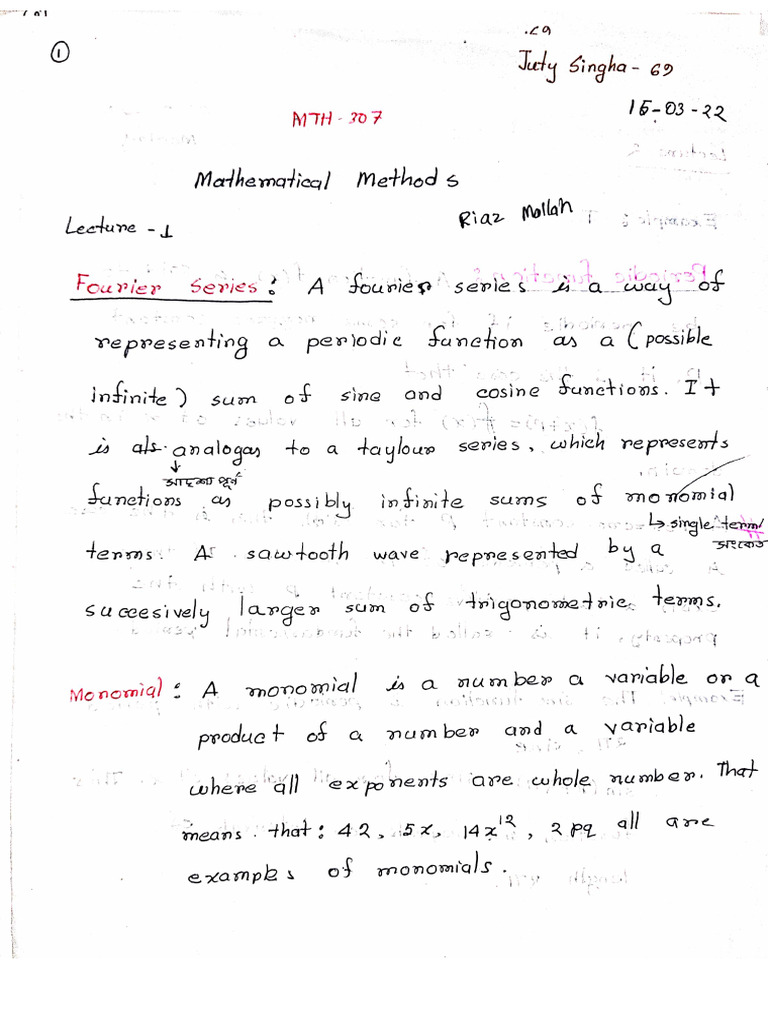 1
Juty Singha - 69
15-03-22
MTH-307
Mathematical Methods
Riaz Mollah
Lecture -1
Fourier Series: A fourier series is a way of
representing a periodic function as a (possible
infinite) sum of sine and cosine functions. It
is als analogas to a taylour series, which represents
functions as possibly infinite sums of monomial
↳ single term/
terms. A sawtooth wave represented by a
succesively larger sum of trigonometric terms.
Monomial: A monomial is a number a variable or a
product of a number and a variable
where all exponents are whole number. That
means that: 42, 5x, 14x¹², 2pq all are
examples of monomials.